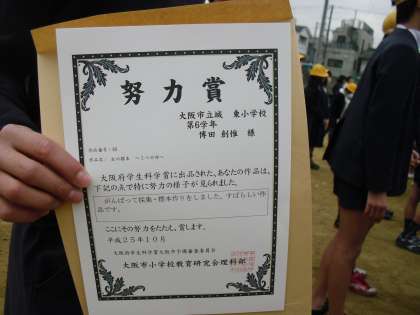 努力賞
大阪市立城 東小学校
第6学年
博田 創惟 様
大阪府学生科学賞に出品された、あなたの作品は、
下記の点で特に努力の様子が見られました。
がんばって採集・標本作りをしました。すばらしい作
品です。
ここにその努力をたたえ、賞します。
平成25年10月
大阪府学生科学賞大阪市予備審査委員会
大阪市小学校教育研究会理科部